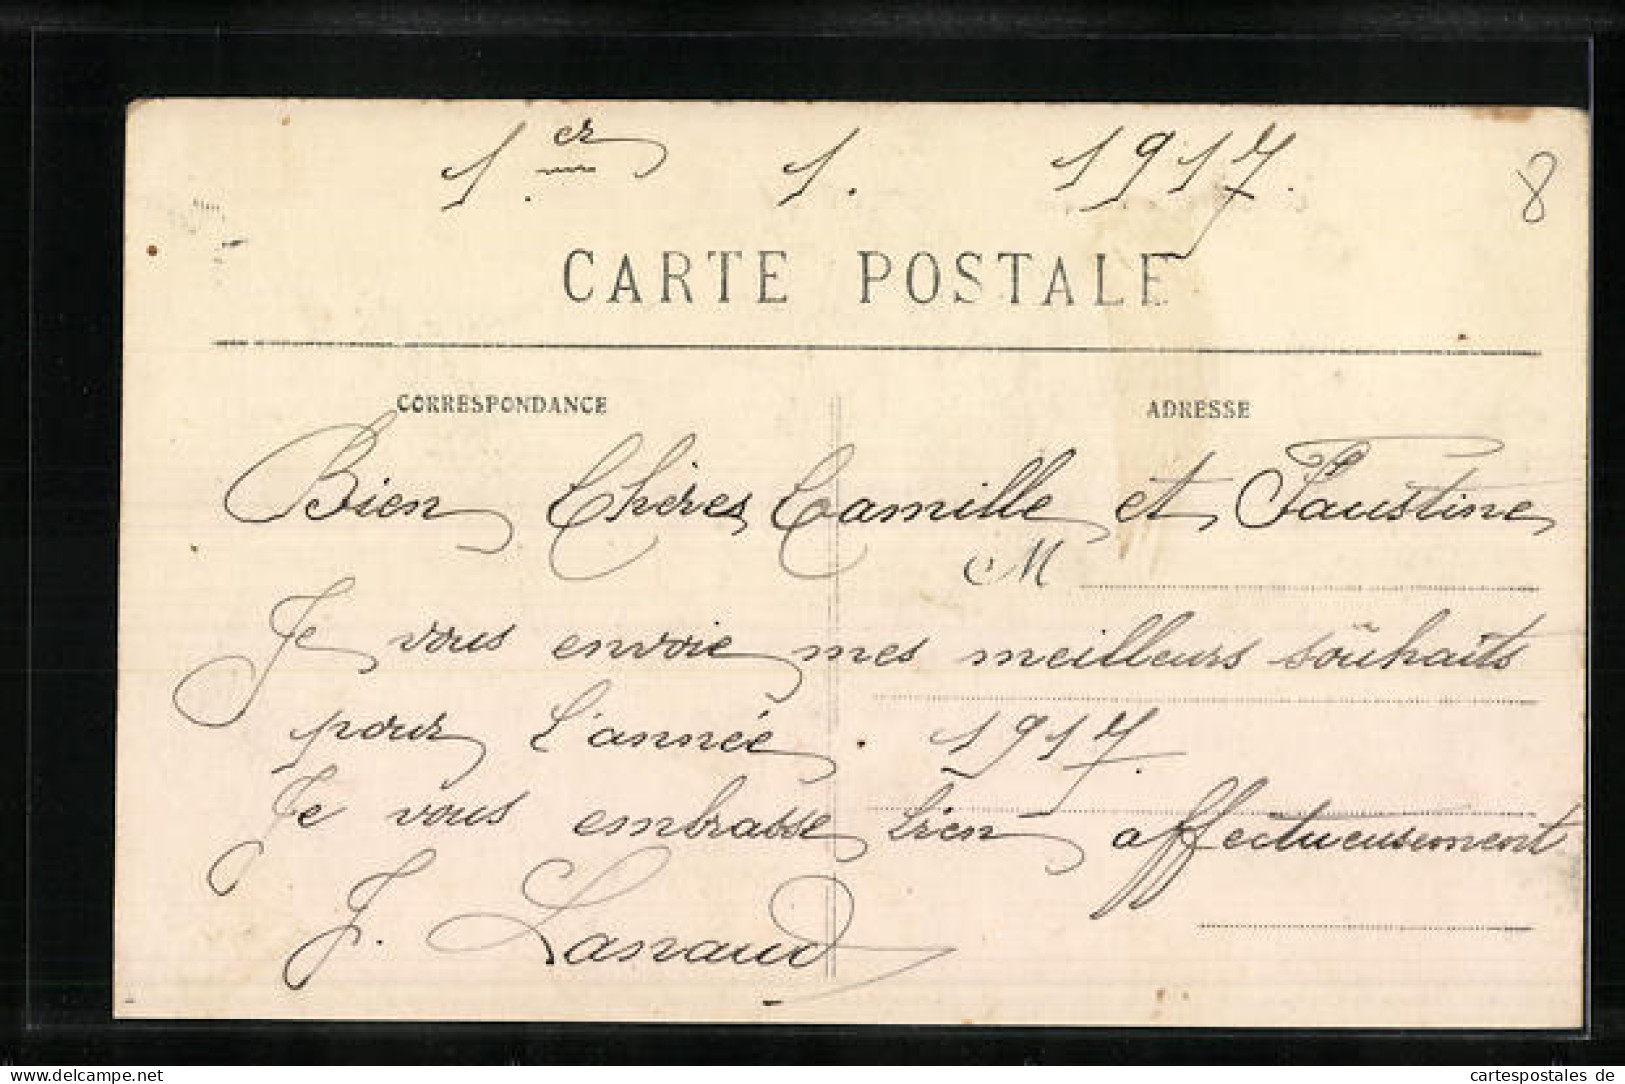 1.er 1. 1917.
8
CARTE POSTALE
CORRESPONDANCE
ADRESSE
Bien Chères Camille et Faustine
M
Je vous envoie mes meilleurs souhaits
pour l'année. 1917.
Je vous embrasse bien affectueusement
J. Lanaud
www.delcampe.net
cartespostales de